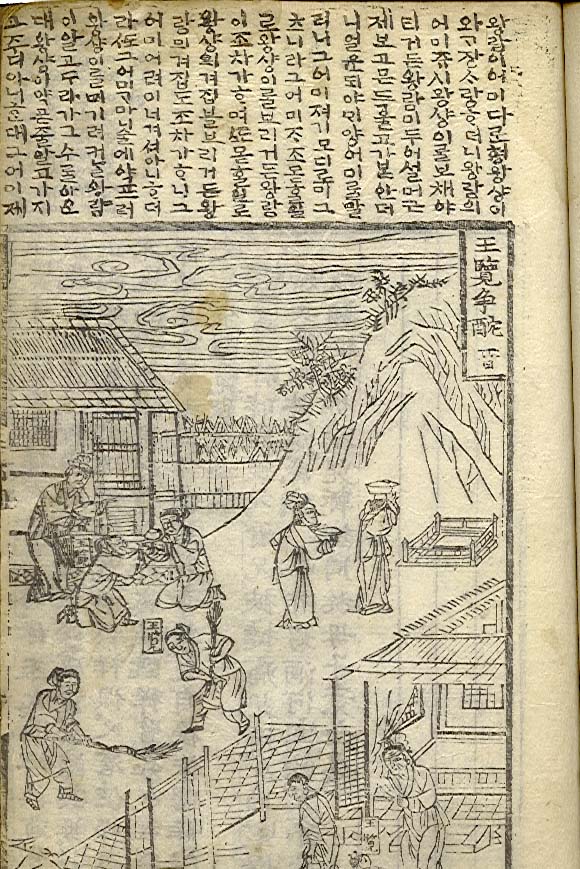 왕람이어미다ᄅᆞᆫ형왕샹이
와ᄀᆞ장ᄉᆞ랑ᄒᆞ더니왕람의
어미ᄌᆞ조왕샹이ᄅᆞᆯ보채야
티거든왕람이드러설머근
제보고믄득울고가븓안더
니열운이되야ᄆᆡ양어미ᄅᆞᆯ말
리더니그어미져기모디로미그
츠니라그어미ᄌᆞ조몯ᄒᆞᆯ일
로왕샹이ᄅᆞᆯ브리거든왕람
이조차가ᄒᆞ며ᄯᅩ몯ᄒᆞᆯ일로
왕샹의겨집블브리거든왕
람의겨집도조차가ᄒᆞ니그
어미어려이너겨아니ᄒᆞ더
라ᄯᅩ그어미마수레약프러
왕샹이ᄅᆞᆯ머기려커ᄂᆞᆯ왕람
이알고ᄃᆞ라가그수를아ᅀᆞᆫ
대왕샹이약푼줄알고가지
고주디아니ᄒᆞᆫ대그어미제
王覽爭酖 晉
王覽
王覽